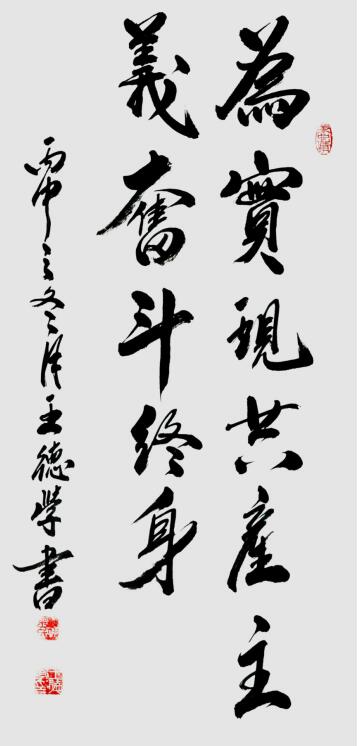 為實現共產主
義奮斗終身
丙申之冬月王德學書